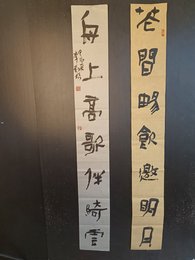 花間暢飲邀明月
舟上高歌伴綺雲